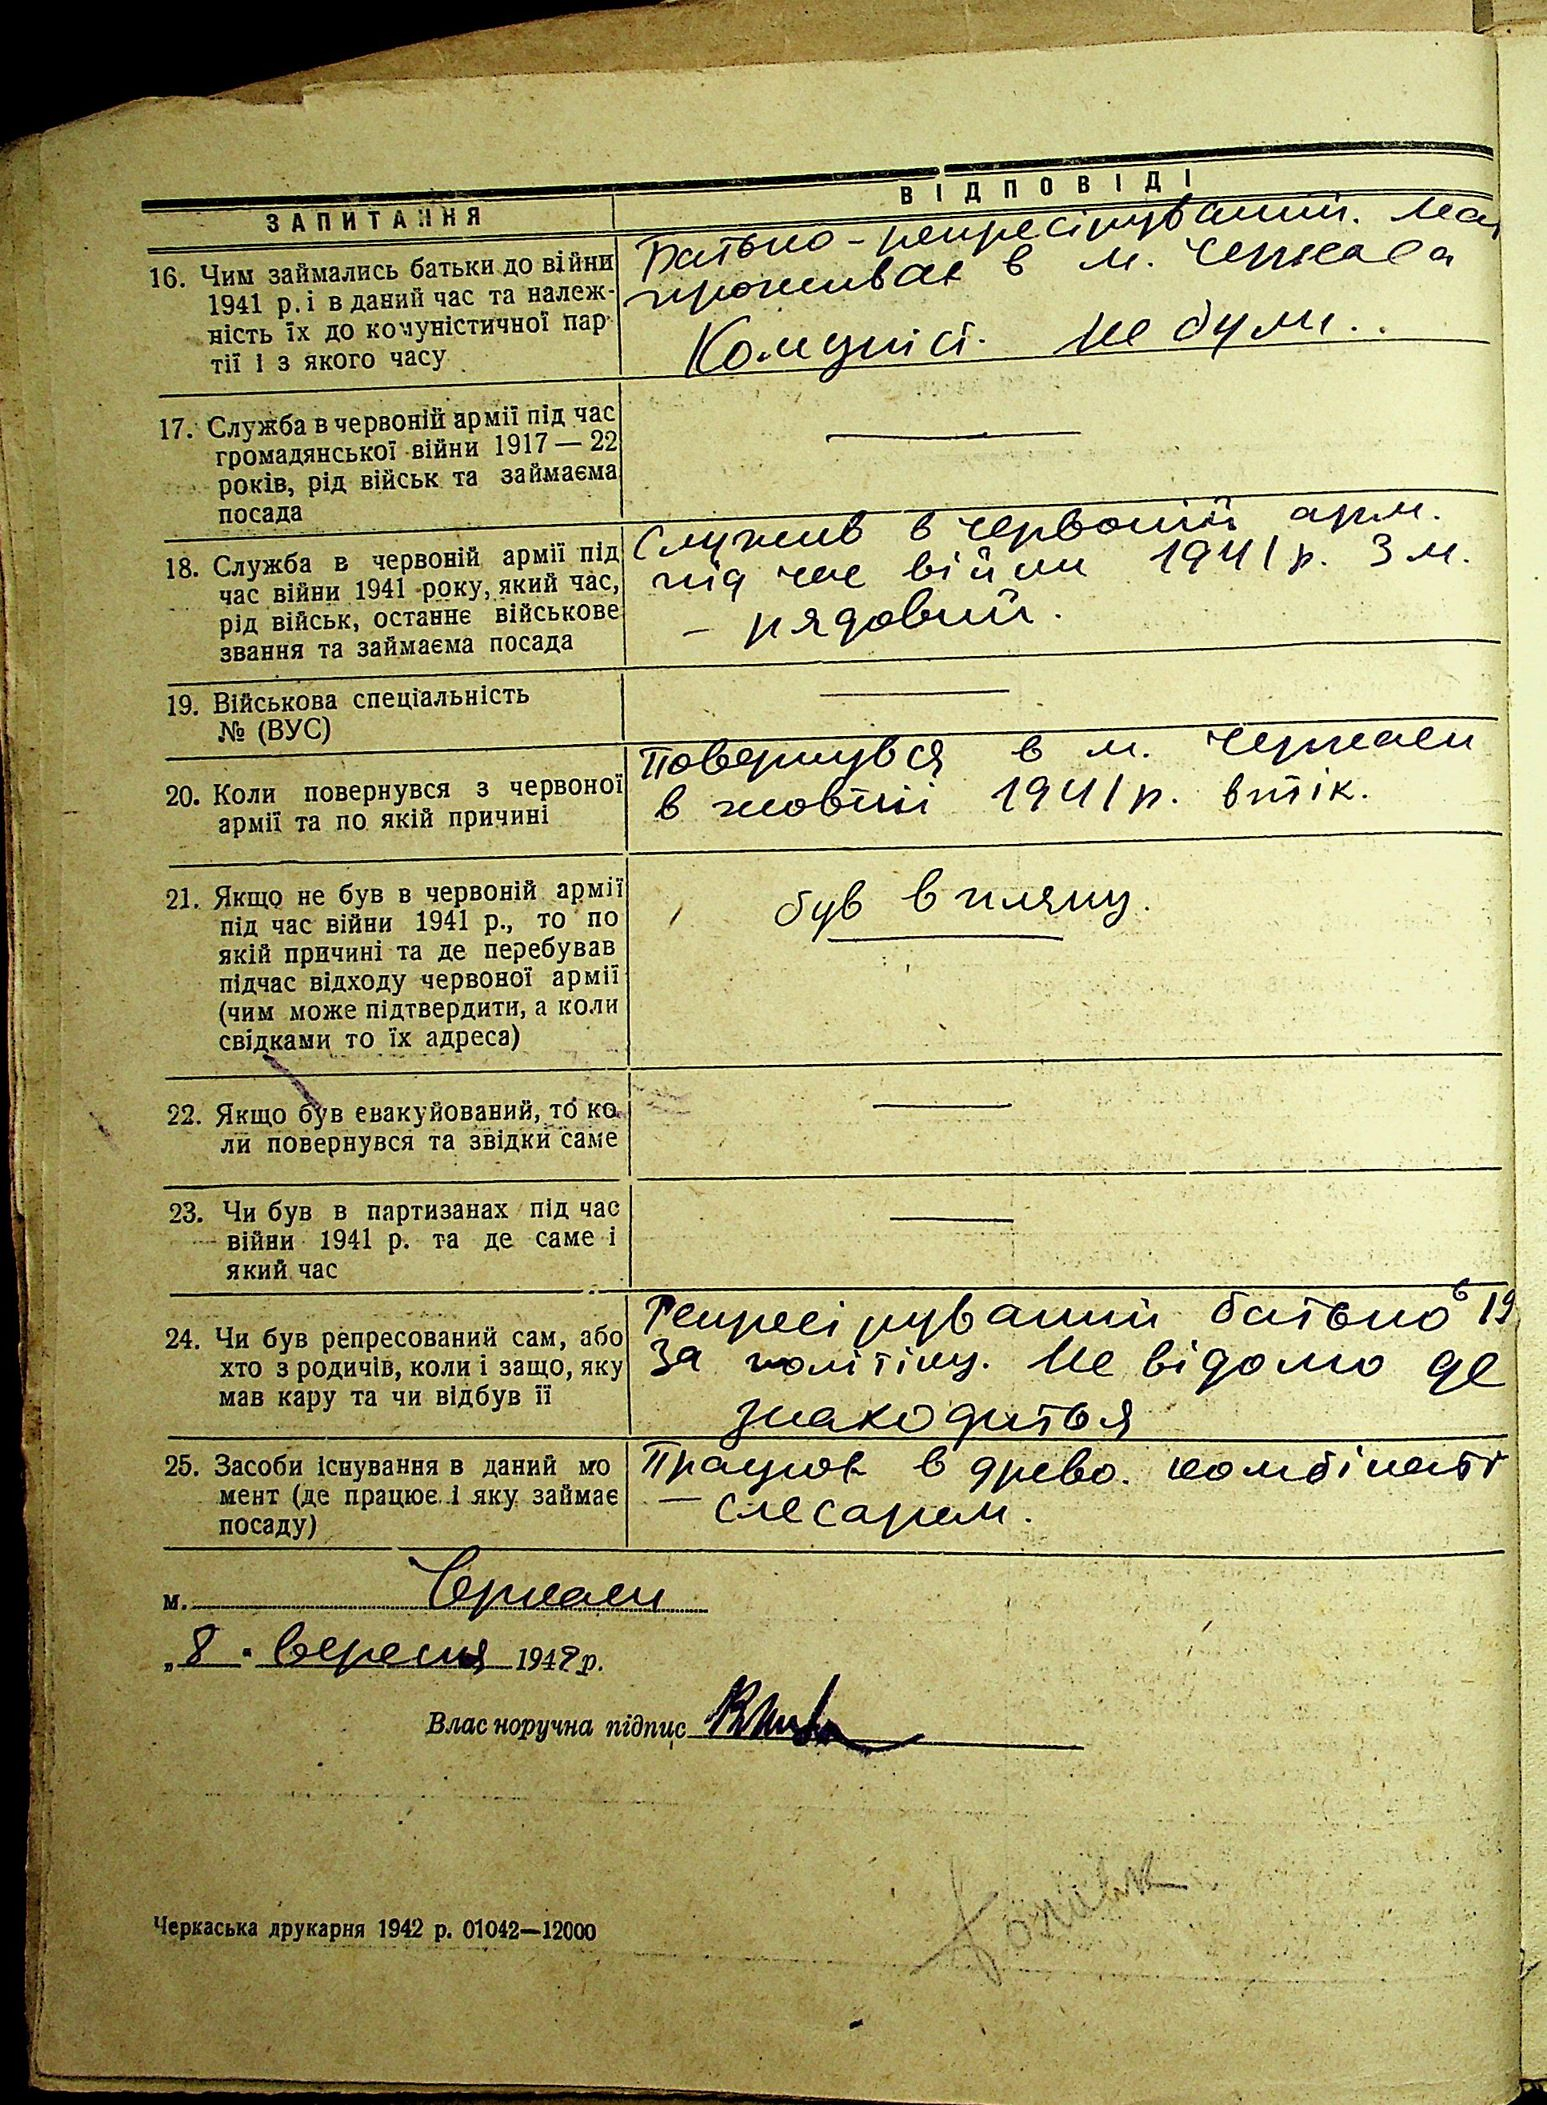 ЗАПИТАННЯ
ВІДПОВІДІ
16. Чим займались батьки до війни
1941 р. і в даний час та належ-
ність їх до комуністичної пар-
тії і з якого часу
Батько - репресірувании. Мат
проживає в м. Черкаса
Комуніст. не були.
17. Служба в червоній армії під час
громадянської війни 1917 — 22
років, рід військ та займаєма
посада
18. Служба в червоній армії під
час війни 1941 року, який час,
рід військ, останнє військове
звання та займаєма посада
Служив в червоній арм.
під час війни 1941 р. 3 м.
- рядовий.
19. Військова спеціальність
№ (ВУС)
20. Коли повернувся з червоної
армії та по якій причині
Повернувся в м. Черкаси
в жовтні 1941 р. втік.
21. Якщо не був в червоній армії
під час війни 1941 р., то по
якій причині та де перебував
підчас відходу червоної армії
(чим може підтвердити, а коли
свідками то їх адреса)
був в пляну.
22. Якщо був евакуйований, то ко
ли повернувся та звідки саме
23. Чи був в партизанах під час
війни 1941 р. та де саме і
який час
24. Чи був репресований сам, або
хто з родичів, коли і защо, яку
мав кару та чи відбув її
Репресірувании батько в 19
За політіку. Не відомо де
знаходиться
25. Засоби існування в даний мо
мент (де працює і яку займає
посаду)
Працює в древо. комбінаті
— слесарем.
м. Черкаси
„ 8 " вересня 1942 р.
Власноручна підпис
Черкаська друкарня 1942 р. 01042—12000